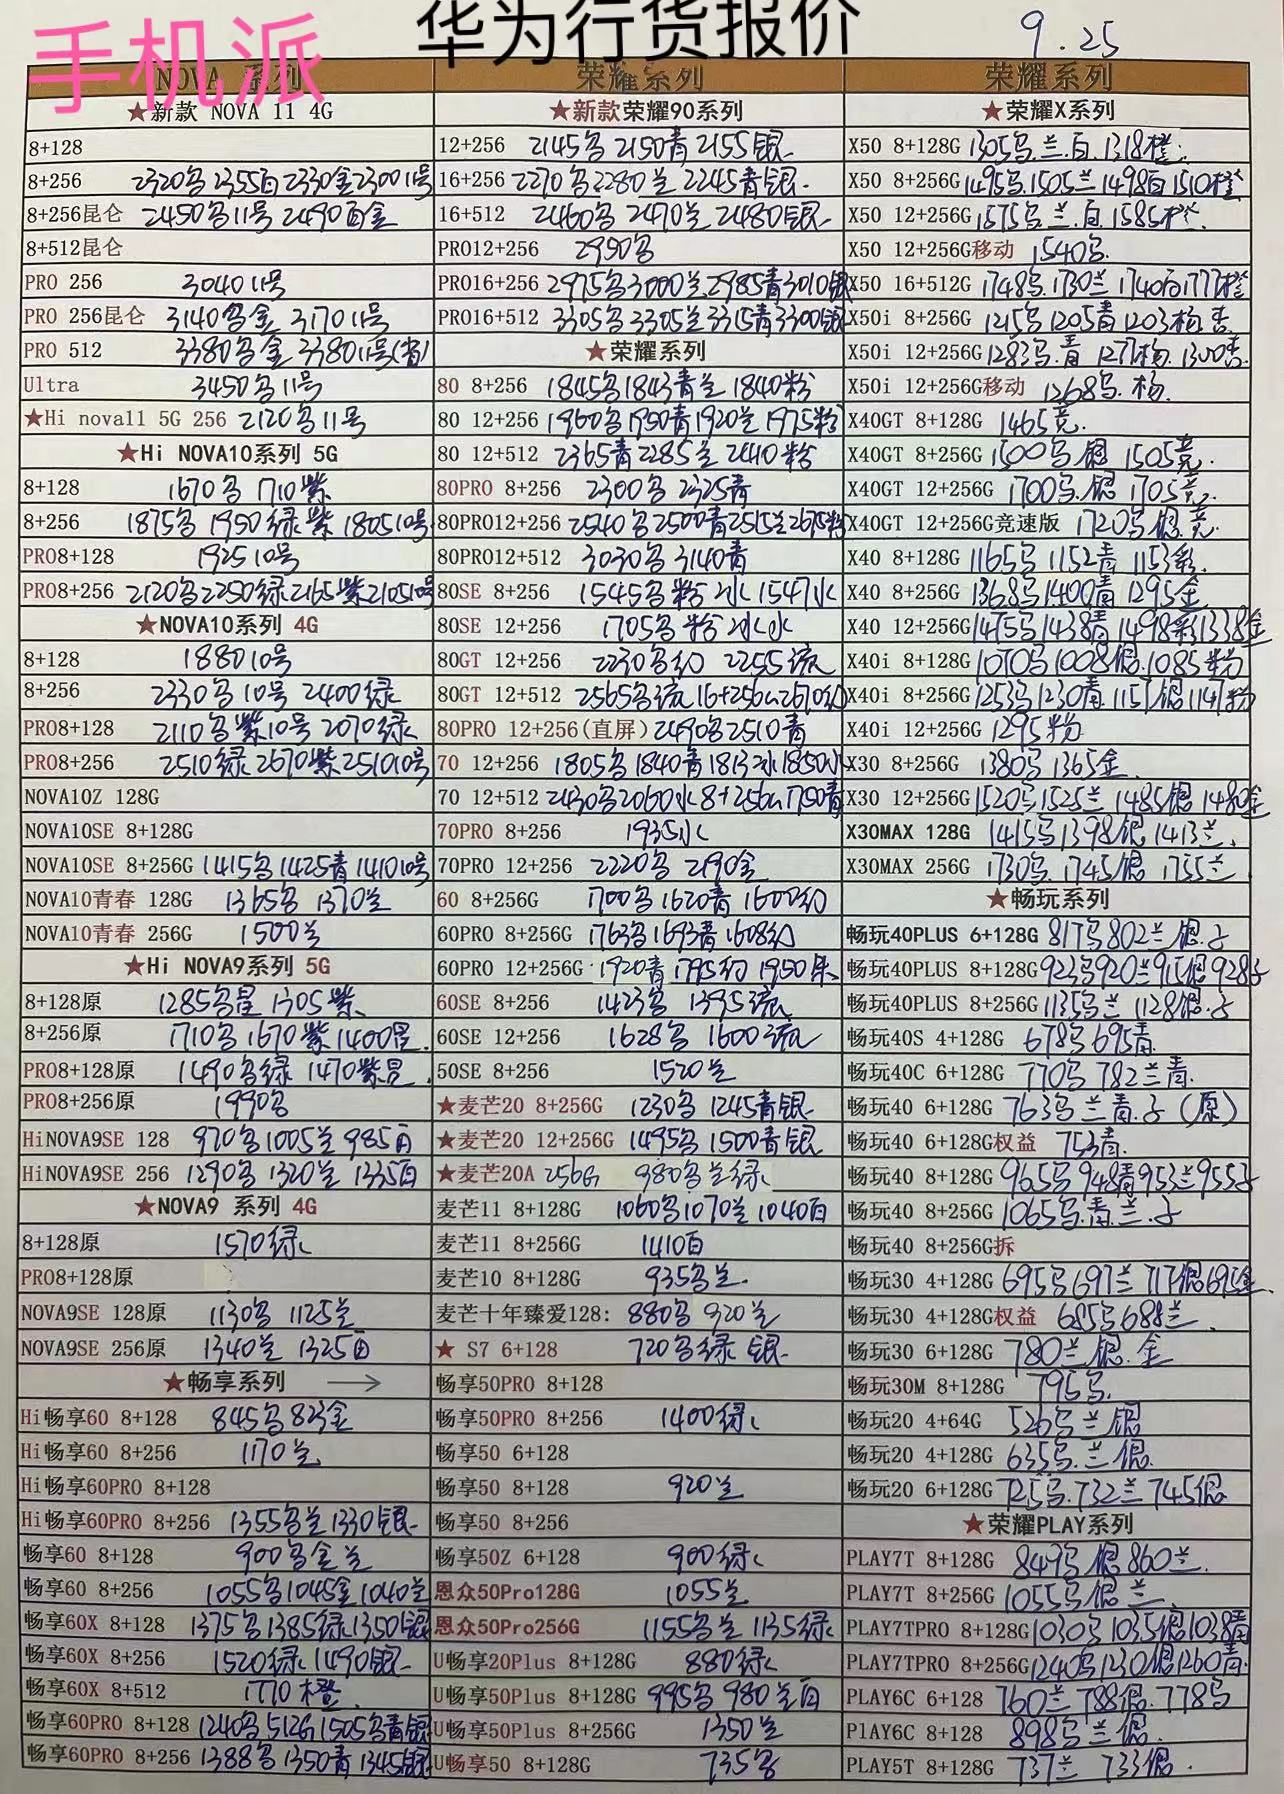 手机派
华为行货报价
9.25
NOVA 系列
★新款 NOVA 11 4G
8+128
8+256 2320 2355白2330金2300 11号
8+256昆仑 2450 11号 2490白金
8+512昆仑
PRO 256 3040 11号
PRO 256昆仑 3140 金 3170 11号
PRO 512 3380 金 3380 11号
Ultra 3450 11号
★Hi nova11 5G 256 2120 11号
★Hi NOVA10系列 5G
8+128 1670 1710紫
8+256 1875 1950绿紫 1805 10号
PRO8+128 1925 10号
PRO8+256 2120 2250绿2165紫2105 10号
★NOVA10系列 4G
8+128 1880 10号
8+256 2330 10号 2400绿
PRO8+128 2110 紫10号 2070绿
PRO8+256 2510绿2670紫2510 10号
NOVA10Z 128G
NOVA10SE 8+128G
NOVA10SE 8+256G 1415 1425青1410 10号
NOVA10青春 128G 1365 1370兰
NOVA10青春 256G 1500兰
★Hi NOVA9系列 5G
8+128原 1285 星 1305紫
8+256原 1710 1670紫1400星
PRO8+128原 1490 绿 1470紫星
PRO8+256原 1990
HiNOVA9SE 128 970 1005兰985白
HiNOVA9SE 256 1290 1320兰 1335白
★NOVA9 系列 4G
8+128原 1570绿
PRO8+128原
NOVA9SE 128原 1130 1125兰
NOVA9SE 256原 1340兰 1325白
★畅享系列 →
Hi畅享60 8+128 845 823金
Hi畅享60 8+256 1170兰
Hi畅享60PRO 8+128
Hi畅享60PRO 8+256 1355 兰1330银
畅享60 8+128 900 金兰
畅享60 8+256 1055 1045金1040兰
畅享60X 8+128 1375 1385绿1350银
畅享60X 8+256 1520绿1490银
畅享60X 8+512 1770橙
畅享60PRO 8+128 1240 512G1505 青银
畅享60PRO 8+256 1388 1350青1345银
荣耀系列
★新款荣耀90系列
12+256 2145 2150青2155银
16+256 2270 2280兰2245青银
16+512 2460 2470兰2480银
PRO12+256 2950
PRO16+256 2975 3000兰2985青3010银
PRO16+512 3305 3305兰3315青3300银
★荣耀系列
80 8+256 1845 1843青兰1840粉
80 12+256 1960 1950青1920兰1975粉
80 12+512 2365青2285兰2440粉
80PRO 8+256 2300 2325青
80PRO12+256 2540 2500青2515兰2675粉
80PRO12+512 3030 3140青
80SE 8+256 1545 粉 冰1547水
80SE 12+256 1705 粉冰水
80GT 12+256 2230 幻 2255流
80GT 12+512 2565 流 16+256 2670幻
80PRO 12+256(直屏) 2490 2510青
70 12+256 1805 1840青1813冰1850水
70 12+512 2430 2060水8+256 1750青
70PRO 8+256 1935水
70PRO 12+256 2220 2190金
60 8+256G 1700 1620青1600幻
60PRO 8+256G 1763 1693青1608幻
60PRO 12+256G 1920青1795幻1950朱
60SE 8+256 1423 1395流
60SE 12+256 1628 1600流
50SE 8+256 1520兰
★麦芒20 8+256G 1230 1245青银
★麦芒20 12+256G 1495 1500青银
★麦芒20A 256G 980 兰绿
麦芒11 8+128G 1060 1070兰1040白
麦芒11 8+256G 1410白
麦芒10 8+128G 935 兰
麦芒十年臻爱128: 880 920兰
★ S7 6+128 720 绿 银
畅享50PRO 8+128
畅享50PRO 8+256 1400绿
畅享50 6+128
畅享50 8+128 920兰
畅享50 8+256
畅享50Z 6+128 900绿
恩众50Pro128G 1055兰
恩众50Pro256G 1155 兰1135绿
U畅享20Plus 8+128G 880绿
U畅享50Plus 8+128G 995 980兰白
U畅享50Plus 8+256G 1350兰
U畅享50 8+128G 735
荣耀系列
★荣耀X系列
X50 8+128G 1305乌.兰.白.1318橙
X50 8+256G 1495乌.1505兰1498白1510橙
X50 12+256G 1575乌兰.白.1585橙
X50 12+256G移动 1540乌
X50 16+512G 1748乌.1730兰1740白1777橙
X50i 8+256G 1215乌1205青1203杨.杏
X50i 12+256G 1283乌.青 1277杨.1300杏
X50i 12+256G移动 1268乌.杨.
X40GT 8+128G 1465竞.
X40GT 8+256G 1500乌 银 1505竞.
X40GT 12+256G 1700乌.银 1705竞.
X40GT 12+256G竞速版 1720乌银.竞
X40 8+128G 1165乌1152青1153彩.
X40 8+256G 1368乌1400青1295金
X40 12+256G 1475乌1438青1498彩1338金
X40i 8+128G 1070乌1008银.1085粉
X40i 8+256G 1253乌1230青1157银1147粉
X40i 12+256G 1295粉
X30 8+256G 1380乌1365金
X30 12+256G 1520乌1525兰1485银1480金
X30MAX 128G 1415乌1398银1413兰.
X30MAX 256G 1730乌.1745银 1755兰
★畅玩系列
畅玩40PLUS 6+128G 817乌802兰银.子
畅玩40PLUS 8+128G 923乌920兰915银928子
畅玩40PLUS 8+256G 1135乌兰1128银.子
畅玩40S 4+128G 678乌695青
畅玩40C 6+128G 770乌782兰青.
畅玩40 6+128G 763乌兰青.子(原)
畅玩40 6+128G权益 753青.
畅玩40 8+128G 965乌948青953兰955子
畅玩40 8+256G 1065乌.青.兰.子
畅玩40 8+256G拆
畅玩30 4+128G 695乌697兰717银695金
畅玩30 4+128G权益 685乌688兰
畅玩30 6+128G 780兰银.金
畅玩30M 8+128G 795乌.
畅玩20 4+64G 526乌兰银
畅玩20 4+128G 635乌.兰银.
畅玩20 6+128G 725乌.732兰745银
★荣耀PLAY系列
PLAY7T 8+128G 849乌银860兰.
PLAY7T 8+256G 1055乌银兰
PLAY7TPRO 8+128G 1030乌1035银1038青
PLAY7TPRO 8+256G 1240乌1230银1260青
PLAY6C 6+128 760兰788银.778乌
PlAY6C 8+128 898乌兰银.
PLAY5T 8+128G 737兰 733银.